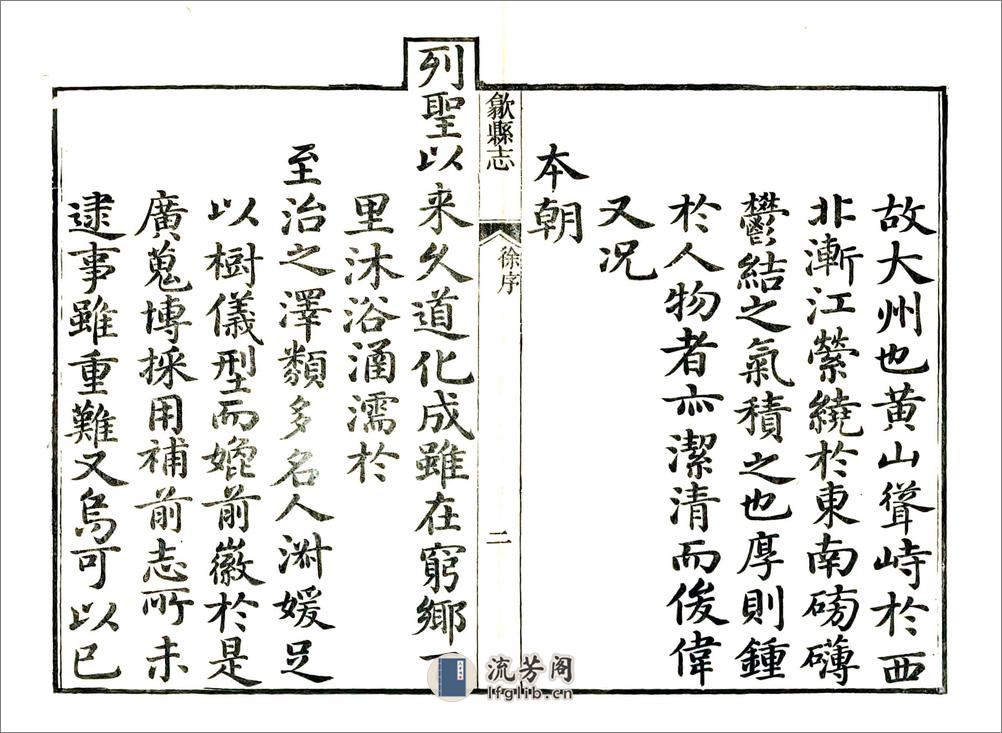 故大州也黄山聳峙於西
北漸江縈繞於東南磅礴
鬱結之氣積之也厚則鍾
於人物者亦潔清而俊偉
又况
本朝
歙縣志
徐序
二
列聖以来久道化成雖在窮鄉一
里沐浴涵濡於
至治之澤類多名人淋媛足
以樹儀型而媲前徽於是
廣蒐博採用補前志所未
逮事雖重難又烏可以已
流芳阁
lfglib.cn